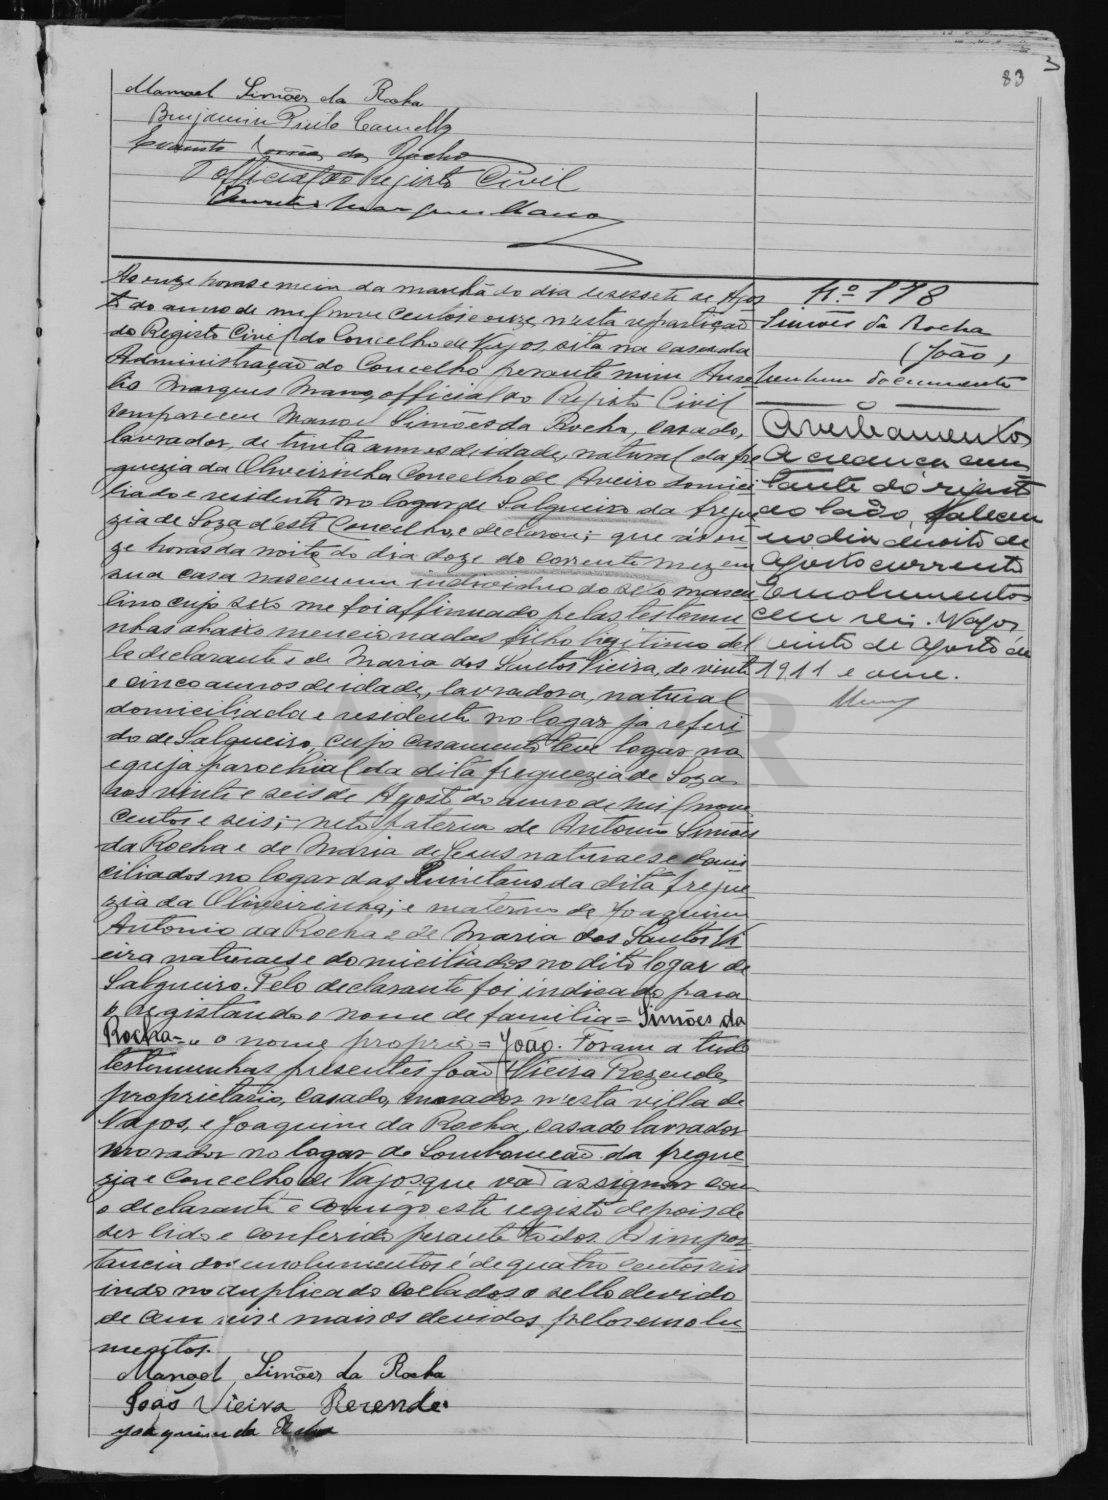 83
Manoel Simões da Rocha
Benjamim Pinto Camello
da Rocha
O official do Registo Civil
Aurelio Marques Mano
Ás onze horas e meia da manhã do dia desessete de Agos
to do anno de mil nove centos e onze, n'esta repartição
do Registo Civil do Concelho de Vagos, sita na casa da
Administração do Concelho, perante mim Aure
lio Marques Mano, official do Registo Civil
compareceu Manoel Simões da Rocha, casado,
lavrador, de trinta annos de idade, natural da fre
guezia da Oliveirinha Concelho de Aveiro domici
liado e residente no logar de Salgueiro da fregue
zia de Soza d'este Concelho, e declarou; que ás on
ze horas da noite do dia doze do corrente mez em
sua casa nasceu um individuo do sexo mascu
lino cujo sexo me foi affirmado pelas testemu
nhas abaixo mencionadas filho legitimo del
le declarante e de Maria dos Santos Vieira, de vinte
e cinco annos de idade, lavradora, natural
domiciliada e residente no logar já referi
do de Salgueiro, cujo casamento teve logar na
egreja parochial da dita freguezia de Soza
aos vinte e seis de Agosto do anno de mil nove
centos e seis; neto paterno de Antonio Simões
da Rocha e de Maria de Jesus naturaes e domi
ciliados no logar das Quintans da dita fregue
zia da Oliveirinha; e materno de Joaquim
Antonio da Rocha e de Maria dos Santos Vi
eira naturaes e domiciliados no dito logar de
Salgueiro. Pelo declarante foi indicado para
o registando o nome de familia = Simões da
Rocha = e o nome proprio = João. Foram a tudo
testemunhas presentes João Vieira Rezende,
proprietario, casado, morador n'esta villa de
Vagos, e Joaquim da Rocha, casado lavrador
morador no logar de Lombomeão da fregue
zia e Concelho de Vagos que vão assignar com
o declarante e comigo este registo depois de
ser lido e conferido perante todos. A impor
tancia dos emolumentos é de quatro centos reis
indo no duplicado collados o sello devido
de cem reis e mais os devidos pelos emolu
mentos.
Manoel Simões da Rocha
João Vieira Rezende
Joaquim da Rocha
N.º 118
Simões da Rocha
(João)
Nenhum documento
Averbamentos
A creança cons
tante do registo
do lado, falleceu
no dia dezoito de
Agosto corrente
Emolumentos
cem reis. Vagos
vinte de Agosto de
1911 e onze.
Mano